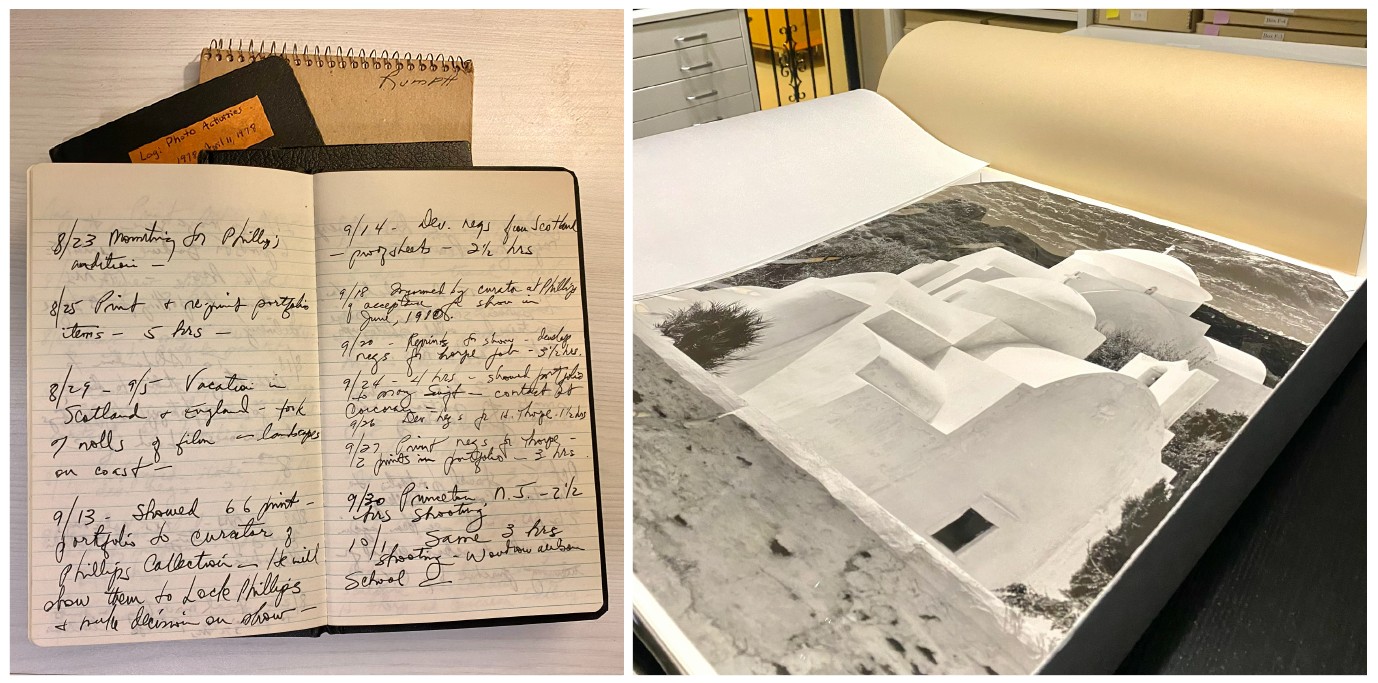 Rumph
Log: Photo Activities
1978 April 11, 1978
8/23 Mounting for Phillips
audition —
8/25 Print + reprint portfolio
items — 5 hrs —
8/29 - 9/5 — Vacation in
Scotland & England — took
7 rolls of film — landscapes
on coast —
9/13 — Showed 66 print —
portfolio to curator of
Phillips Collection — He will
show them to Phillips
& make decision on show —
9/14 — Dev. negs from Scotland
— proof sheets — 2½ hrs
9/18 Informed by curator at Phillips
of acceptance of show in
June, 19
9/20 — Reprints for show — develop
negs for Thorpe job — 3½ hrs.
9/24 — 4 hrs — showed portfolio
to — contact at
Corcoran —
9/26 Dev negs for H. Thorpe. 1½ hrs
9/27 Print negs for Thorpe —
2 prints in portfolio — 3 hrs.
9/30 Princeton N.J. — 2½
hrs shooting
10/1 Same 3 hrs
shooting — Woodrow Wilson
School
Box
Box